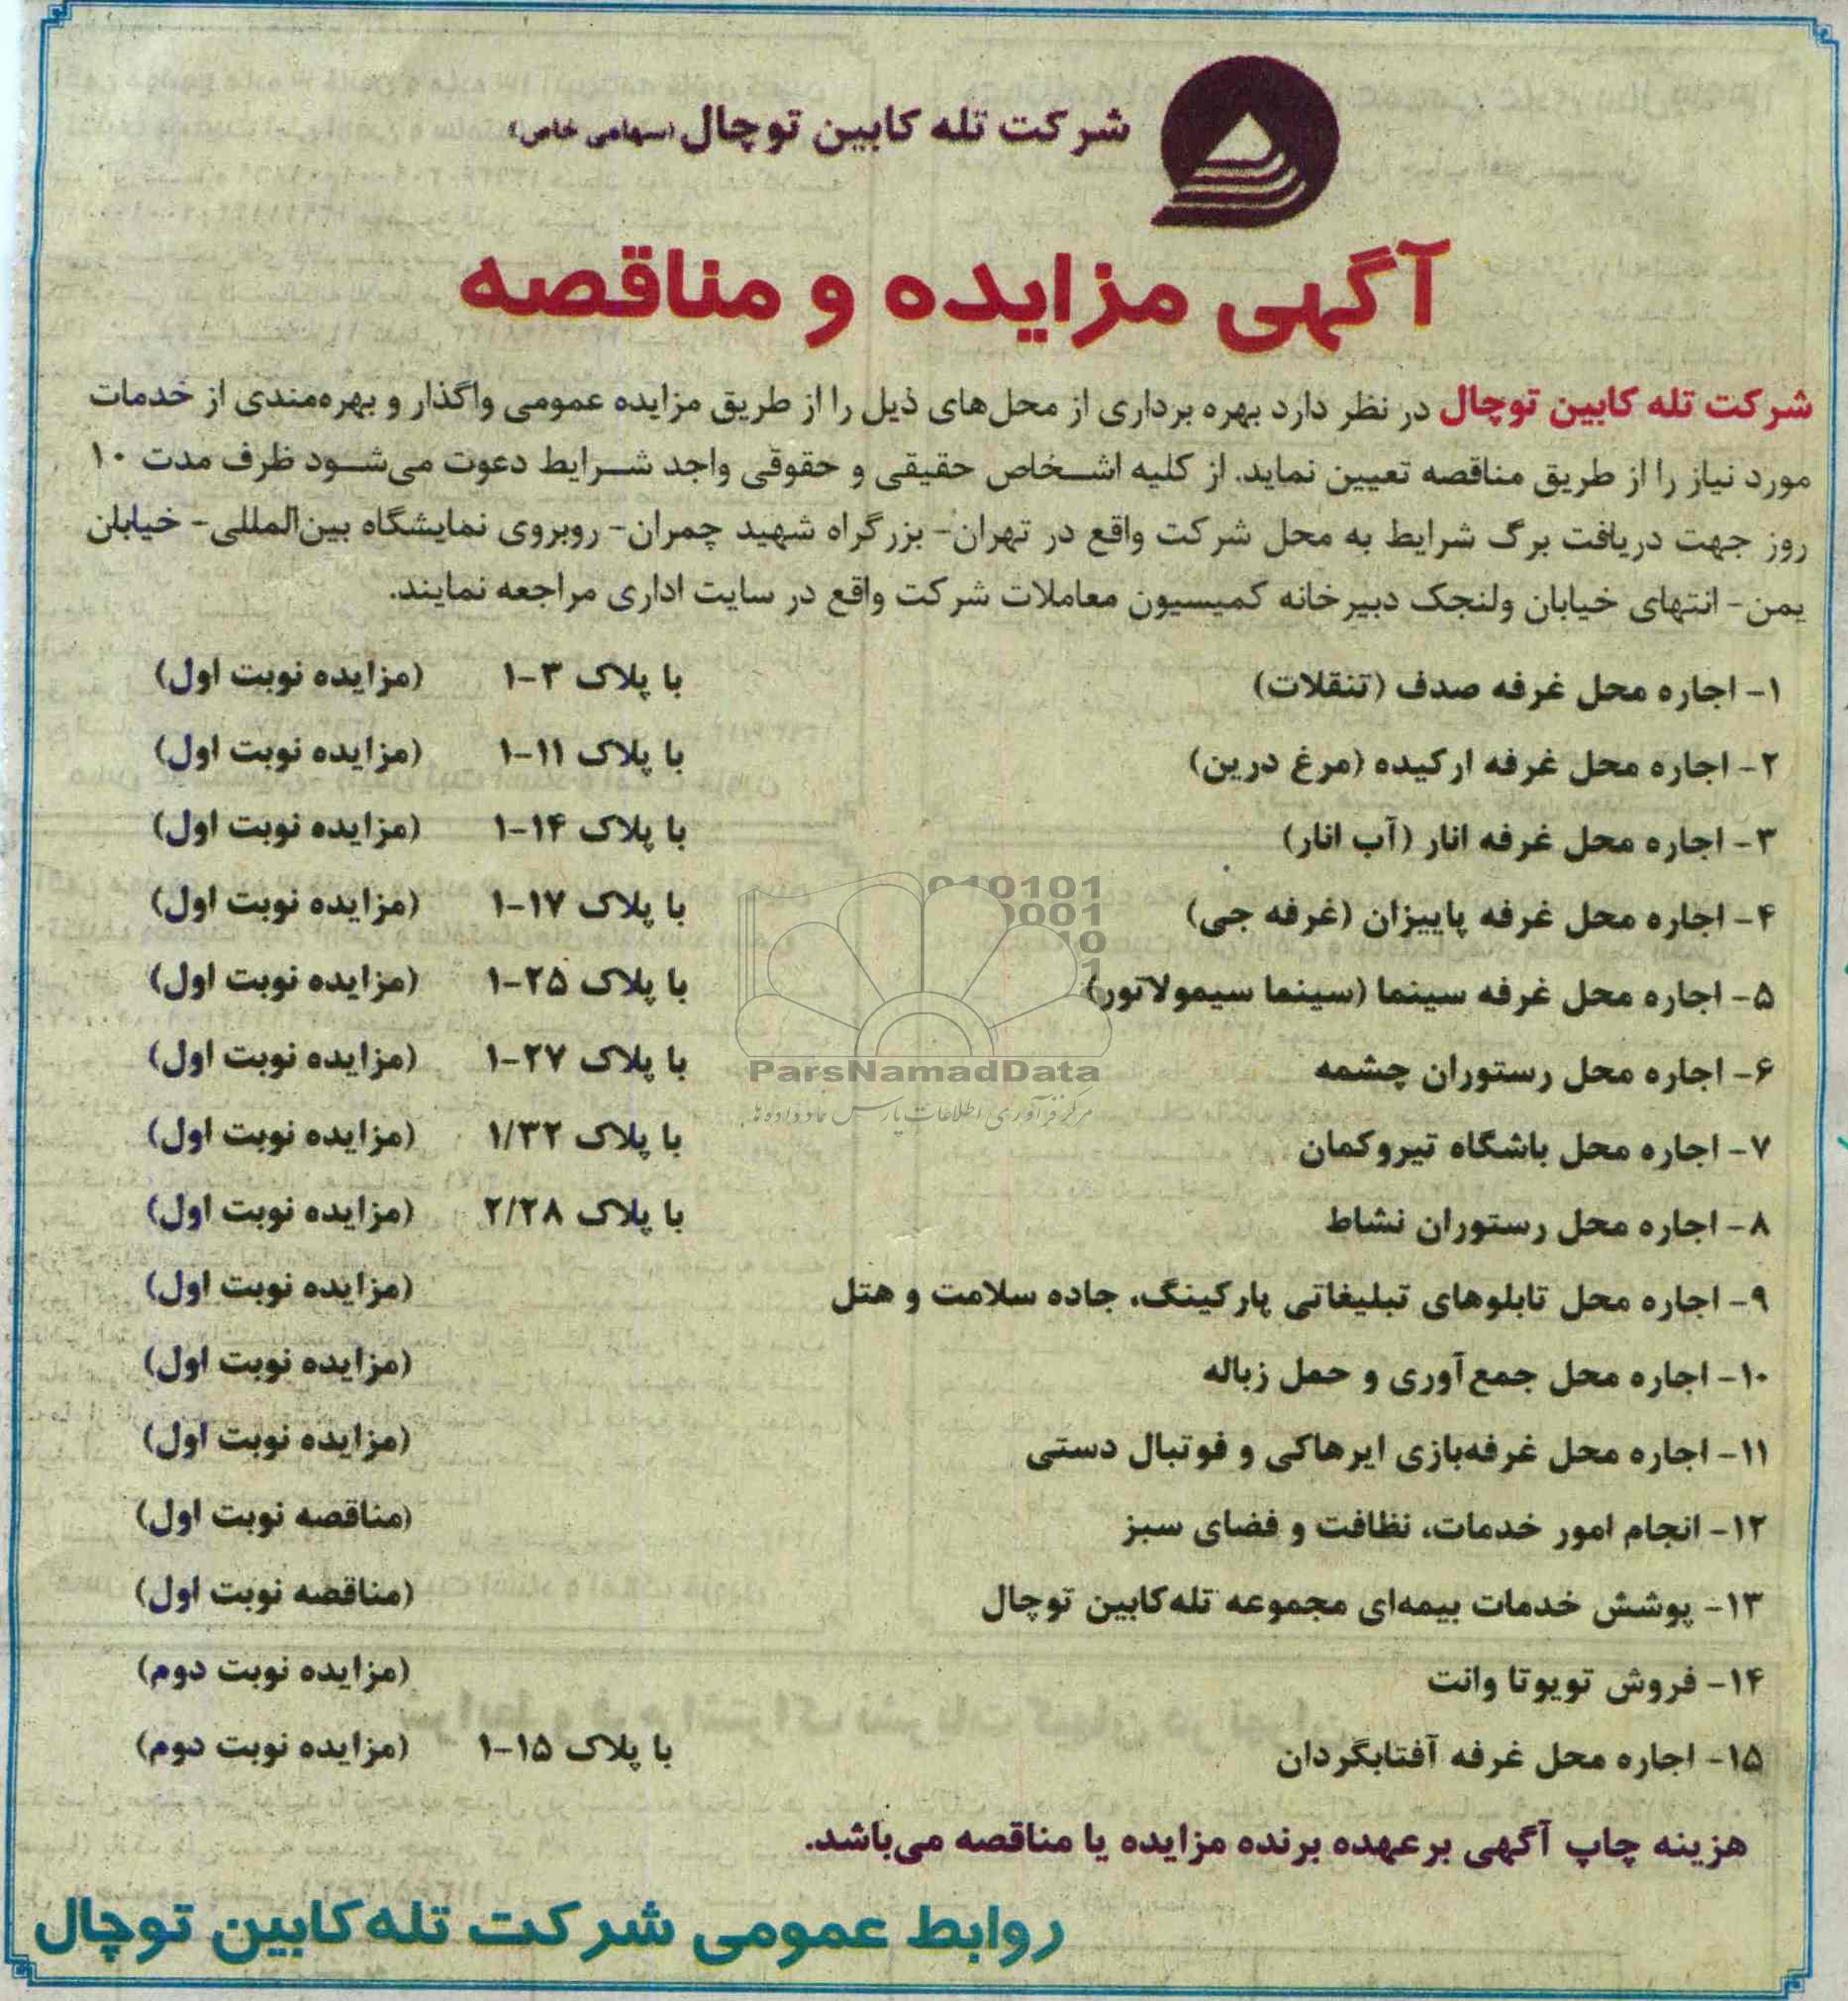 شرکت تله کابین توچال (سهامی خاص)
آگهی مزایده و مناقصه
شرکت تله کابین توچال در نظر دارد بهره برداری از محل‌های ذیل را از طریق مزایده عمومی واگذار و بهره‌مندی از خدمات
مورد نیاز را از طریق مناقصه تعیین نماید. از کلیه اشخاص حقیقی و حقوقی واجد شرایط دعوت می‌شود ظرف مدت ۱۰
روز جهت دریافت برگ شرایط به محل شرکت واقع در تهران- بزرگراه شهید چمران- روبروی نمایشگاه بین‌المللی- خیابلن
یمن- انتهای خیابان ولنجک دبیرخانه کمیسیون معاملات شرکت واقع در سایت اداری مراجعه نمایند.
۱- اجاره محل غرفه صدف (تنقلات) با پلاک ۳-۱ (مزایده نوبت اول)
۲- اجاره محل غرفه ارکیده (مرغ درین) با پلاک ۱۱-۱ (مزایده نوبت اول)
۳- اجاره محل غرفه انار (آب انار) با پلاک ۱۴-۱ (مزایده نوبت اول)
۴- اجاره محل غرفه پاییزان (غرفه جی) با پلاک ۱۷-۱ (مزایده نوبت اول)
۵- اجاره محل غرفه سینما (سینما سیمولاتور) با پلاک ۲۵-۱ (مزایده نوبت اول)
۶- اجاره محل رستوران چشمه با پلاک ۲۷-۱ (مزایده نوبت اول)
۷- اجاره محل باشگاه تیروکمان با پلاک ۱/۳۲ (مزایده نوبت اول)
۸- اجاره محل رستوران نشاط با پلاک ۲/۲۸ (مزایده نوبت اول)
۹- اجاره محل تابلوهای تبلیغاتی پارکینگ، جاده سلامت و هتل (مزایده نوبت اول)
۱۰- اجاره محل جمع‌آوری و حمل زباله (مزایده نوبت اول)
۱۱- اجاره محل غرفه‌بازی ایرهاکی و فوتبال دستی (مزایده نوبت اول)
۱۲- انجام امور خدمات، نظافت و فضای سبز (مناقصه نوبت اول)
۱۳- پوشش خدمات بیمه‌ای مجموعه تله‌کابین توچال (مناقصه نوبت اول)
۱۴- فروش تویوتا وانت (مزایده نوبت دوم)
۱۵- اجاره محل غرفه آفتابگردان با پلاک ۱۵-۱ (مزایده نوبت دوم)
هزینه چاپ آگهی برعهده برنده مزایده یا مناقصه می‌باشد.
روابط عمومی شرکت تله‌کابین توچال
ParsNamadData
مرکز فرآوری اطلاعات پارس نماد داده ها